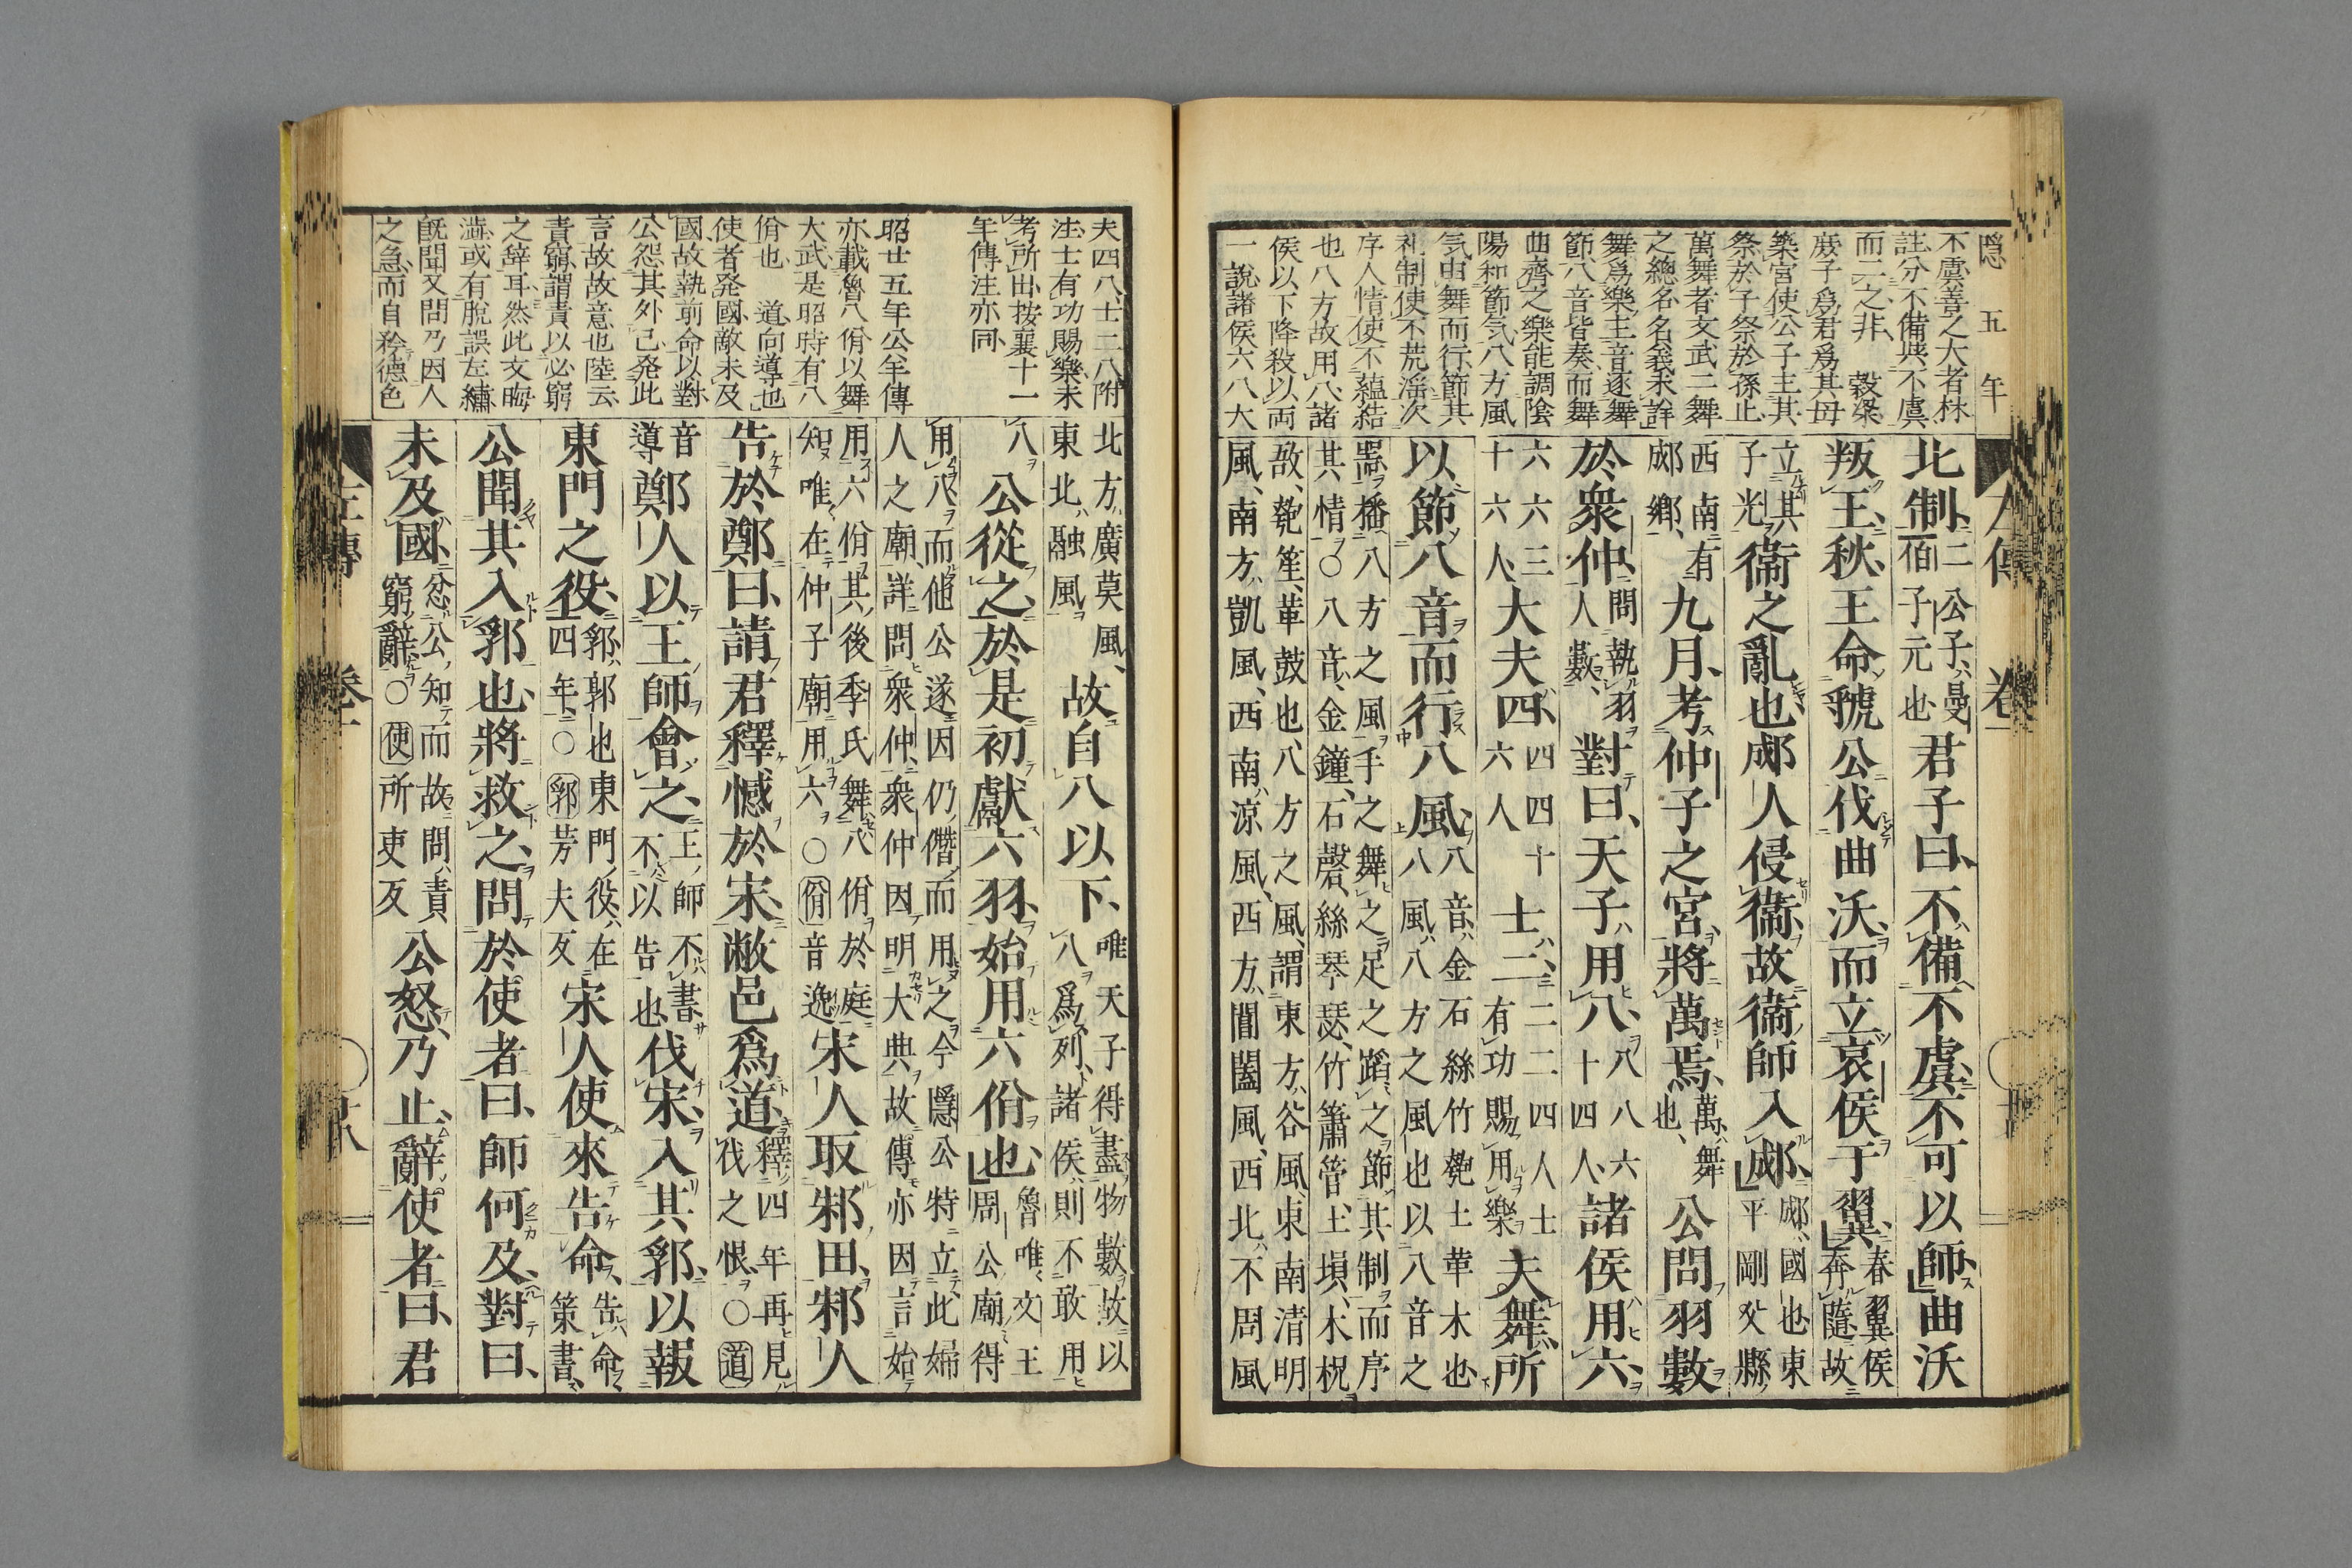 隱五年
不虞善之大者林
註分不備與不虞
而二之非 穀梁
庶子爲君爲其母
築宮使公子主其
祭於子祭於孫止
萬舞者文武二舞
之總名名義未詳
舞爲樂主音逐舞
節八音皆奏而舞
曲齊之樂能調陰
陽和節気八方風
気由舞而行節其
礼制使不荒淫次
序人情使不蘊結
也八方故用八諸
侯以下降殺以両
一說諸侯六八大
北制二公子曼伯子元也君子曰不備不虞不可以師曲沃
叛王秋王命虢公伐曲沃而立哀侯于翼春翼侯奔隨故
立其子光衞之亂也郕人侵衞故衞師入郕郕國也東平剛父縣
西南有郕鄉九月考仲子之宮將萬焉萬舞也公問羽數
於衆仲問執羽人數對曰天子用八八八六十四人諸侯用六
六六三十六人大夫四四四十六人士二二二四人士有功賜用樂夫舞所
以節八音而行八風八音金石絲竹匏土革木也八風八方之風也以八音之
器播八方之風手之舞之足之蹈之節其制而序
其情○八音金鐘石磬絲琴瑟竹簫管土塤木柷
敔匏笙革鼓也八方之風謂東方谷風東南清明
風南方凱風西南涼風西方閶闔風西北不周風
夫四八士二八附
注士有功賜樂未
考所出按襄十一
年傳注亦同
昭廿五年公羊傳
亦載魯八佾以舞
大武是昭時有八
佾也 道向導也
使者発國敵未及
國故執前命以對
公怨其外已発此
言故故意也陸云
責窮謂責以必窮
之辞耳然此文晦
澁或有脫誤左繡
既聞又問乃因人
之急而自矜德色
北方廣莫風東北融風故自八以下唯天子得盡物數故以八爲列諸侯則不敢用
八公從之於是初獻六羽始用六佾也魯唯文王周公廟得
用八而他公遂因仍僭而用之今隱公特立此婦
人之廟詳問衆仲衆仲因明大典故傳亦因言始
用六佾其後季氏舞八佾於庭知唯在仲子廟用六○佾音逸宋人取邾田邾人
告於鄭曰請君釋憾於宋敝邑爲道釋四年再見伐之恨○道
音導鄭人以王師會之王師不書不以告也伐宋入其郛以報
東門之役郛郭也東門役在四年○郛芳夫反宋人使來告命告命策書
公聞其入郛也將救之問於使者曰師何及對曰
未及國忿公知而故問責窮辭○使所吏反公怒乃止辭使者曰君